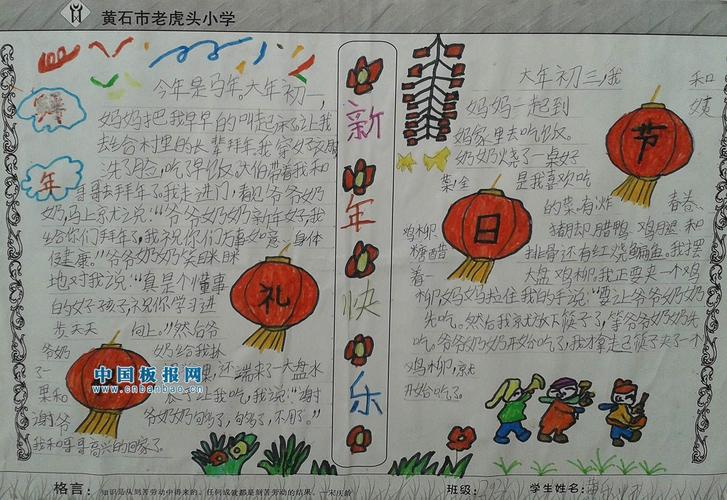 黄石市老虎头小学
年
今年是马年。大年初一,
妈妈把我早早的叫起床了让我
去给村里的长辈拜年我穿好衣服
洗了脸,吃了早饭大伯带着我和
哥哥去拜年了。我走进门,看见爷爷奶
奶,马上就大声说:“爷爷奶奶新年好我
给你们拜年了,我祝你们万事如意,身体
健康。”爷爷奶奶笑眯眯
地对我说:“真是个懂事
的好孩子,祝你学习进
步天天 向上。”然后爷
爷奶 奶给我抓
了一 还端来了一大盘水
果和 我吃,我说:“谢
谢爷 爷奶奶 够了,不用了。”
我和哥哥高兴的回家了。
礼
中国板报网
www.cnbanbao.cn
新
年
快
乐
大年初三,我 和
妈妈一起到 姨
妈家里去吃饭。
奶奶烧了一桌好
菜,全 是我喜欢吃
的菜有炸 春卷、
鸡柳 腊鸭 鸡腿 和
糖醋 排骨还有红烧鳊鱼。我摆
着一 大盘鸡柳,我正要夹一个鸡
柳妈妈拉住我的手说:“要让爷爷奶奶
先吃。然后我就放下筷子了,等爷爷奶奶先
吃。爷爷奶奶开始吃了,我才拿起筷子夹了个
鸡柳,就
开始吃了。
节
日
格言: 知识是从刻苦劳动中得来的。任何成就都是刻苦劳动的结果。—宋庆龄
班级: 学生姓名: